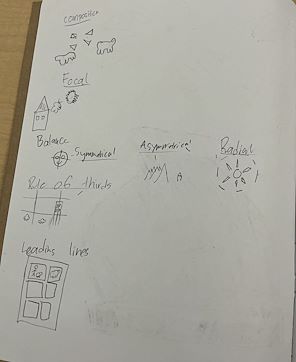 Composition
Focal
Balance
Symmetrical
Asymmetrical
Radial
Rule of thirds
Leading lines